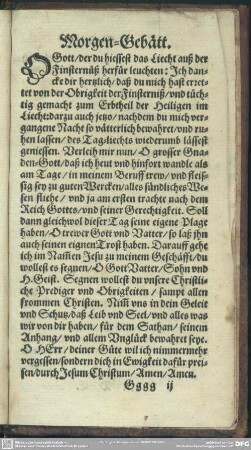 Morgen-Gebätt.
O Gott / der du hiessest das Liecht auß der
Finsternüß herfür leuchten: Ich dan-
cke dir hertzlich / daß du mich hast erret-
tet von der Obrigkeit der Finsternüß / vnd tüch-
tig gemacht zum Erbtheil der Heiligen im
Liecht: darzu auch jetzo / nachdem du mich ver-
gangene Nacht so vätterlich bewahret / vnd ru-
hen lassen / des Tag-liechts widerumb lässest
geniessen. Verleih mir nun / O grosser Gna-
den-Gott / daß ich heut vnd hinfort wandle als
am Tage / in meinem Beruff trew / vnd fleis-
sig sey zu guten Wercken / alles sündliches We-
sen fliehe / vnd ja am ersten trachte nach dem
Reich Gottes / vnd seiner Gerechtigkeit. Soll
dann gleichwol dieser Tag seine eigene Plage
haben / O trewer Gott vnd Vatter / so laß jhn
auch seinen eignen Trost haben. Darauff gehe
ich im Namen Jesu zu meinem Geschäfft / du
wollest es segnen / O Gott Vatter / Sohn vnd
H. Geist. Segnen wollest du vnsere Christli-
che Prediger vnd Obrigkeiten / sampt allen
frommen Christen. Nim̃ vns in dein Geleit
vnd Schutz / daß Leib vnd Seel / vnd alles was
wir von dir haben / für dem Sathan / seinem
Anhang / vnd allem Vnglück bewahret seye.
O HErr / deiner Güte wil ich nimmermehr
vergessen / sondern dich in Ewigkeit dafür prei-
sen / durch Jesum Christum / Amen / Amen.
Gggg ij